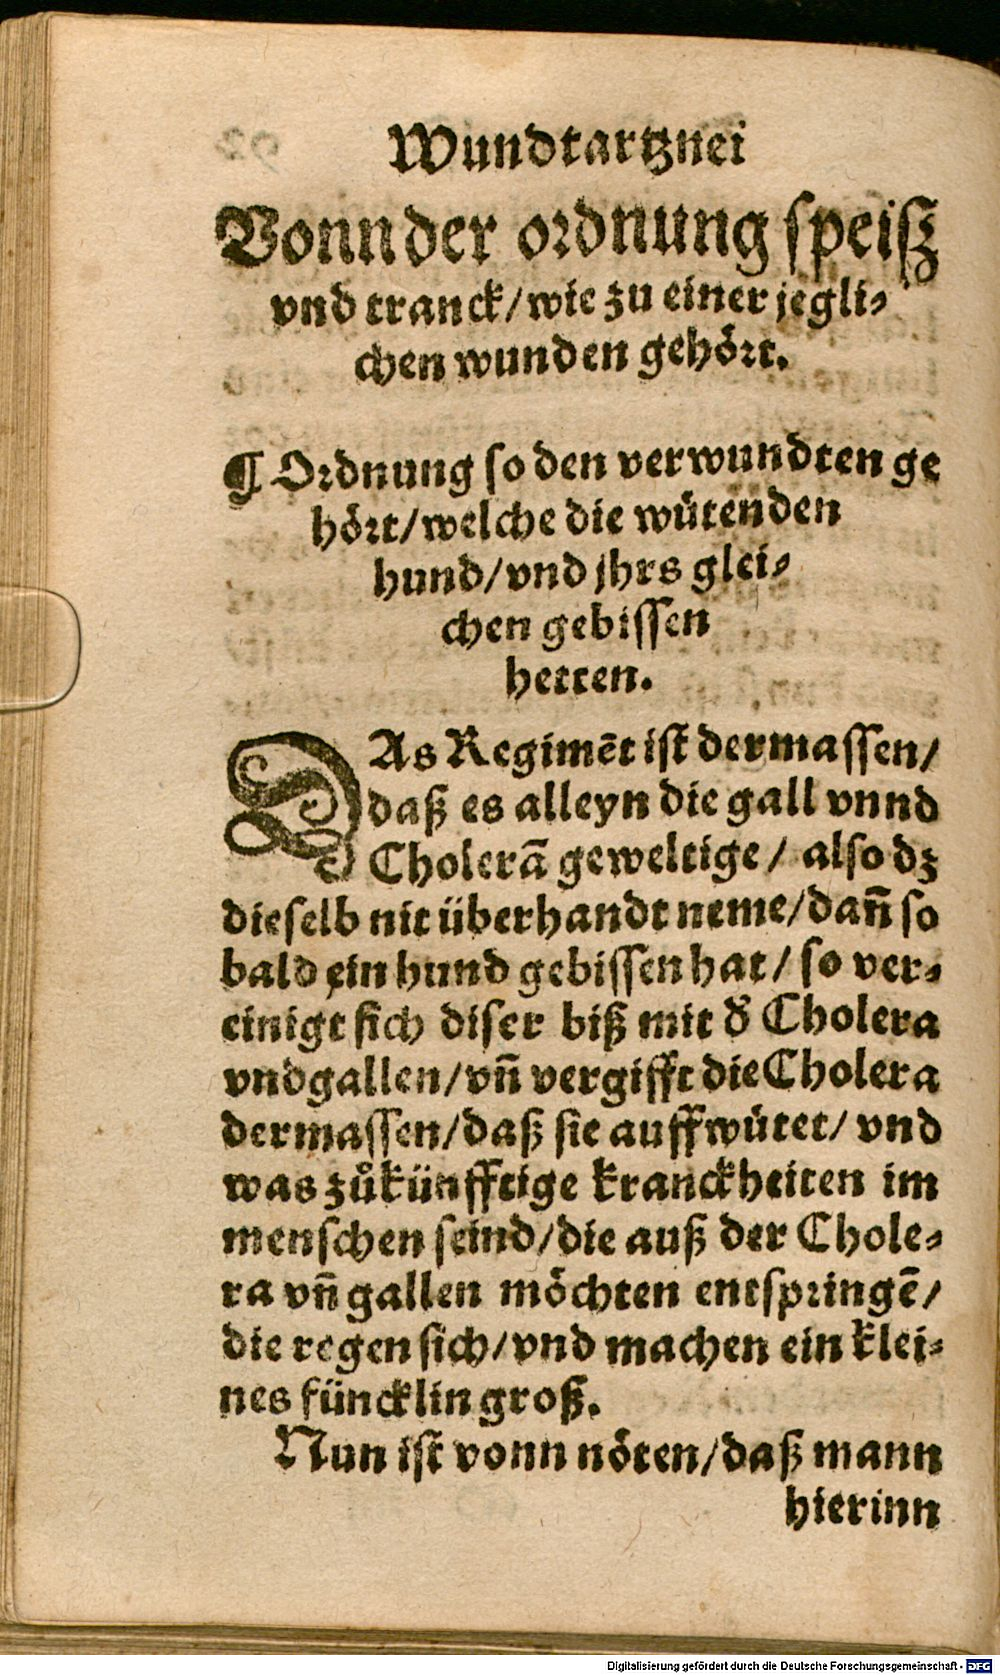 Wundtartznei
Vonn der ordnung speisz
vnd tranck/wie zu einer jegli⸗
chen wunden gehört.
¶ Ordnung so den verwundten ge
hört/welche die wütenden
hund/vnd jhrs glei⸗
chen gebissen
hetten.
DAs Regimēt ist dermassen/
daß es alleyn die gall vnnd
Cholerā geweltige/ also dz
dieselb nit überhandt neme/dañ so
bald ein hund gebissen hat/ so ver⸗
einigt sich diser biß mit d̕ Cholera
vnd gallen/vñ vergifft die Cholera
dermassen/daß sie auffwütet/ vnd
was zůkünfftige kranckheiten im
menschen seind/die auß der Chole⸗
ra vñ gallen möchten entspringē/
die regen sich/vnd machen ein klei⸗
nes füncklin groß.
Nun ist vonn nöten/daß mann
hierinn
Digitalisierung gefördert durch die Deutsche Forschungsgemeinschaft - DFG